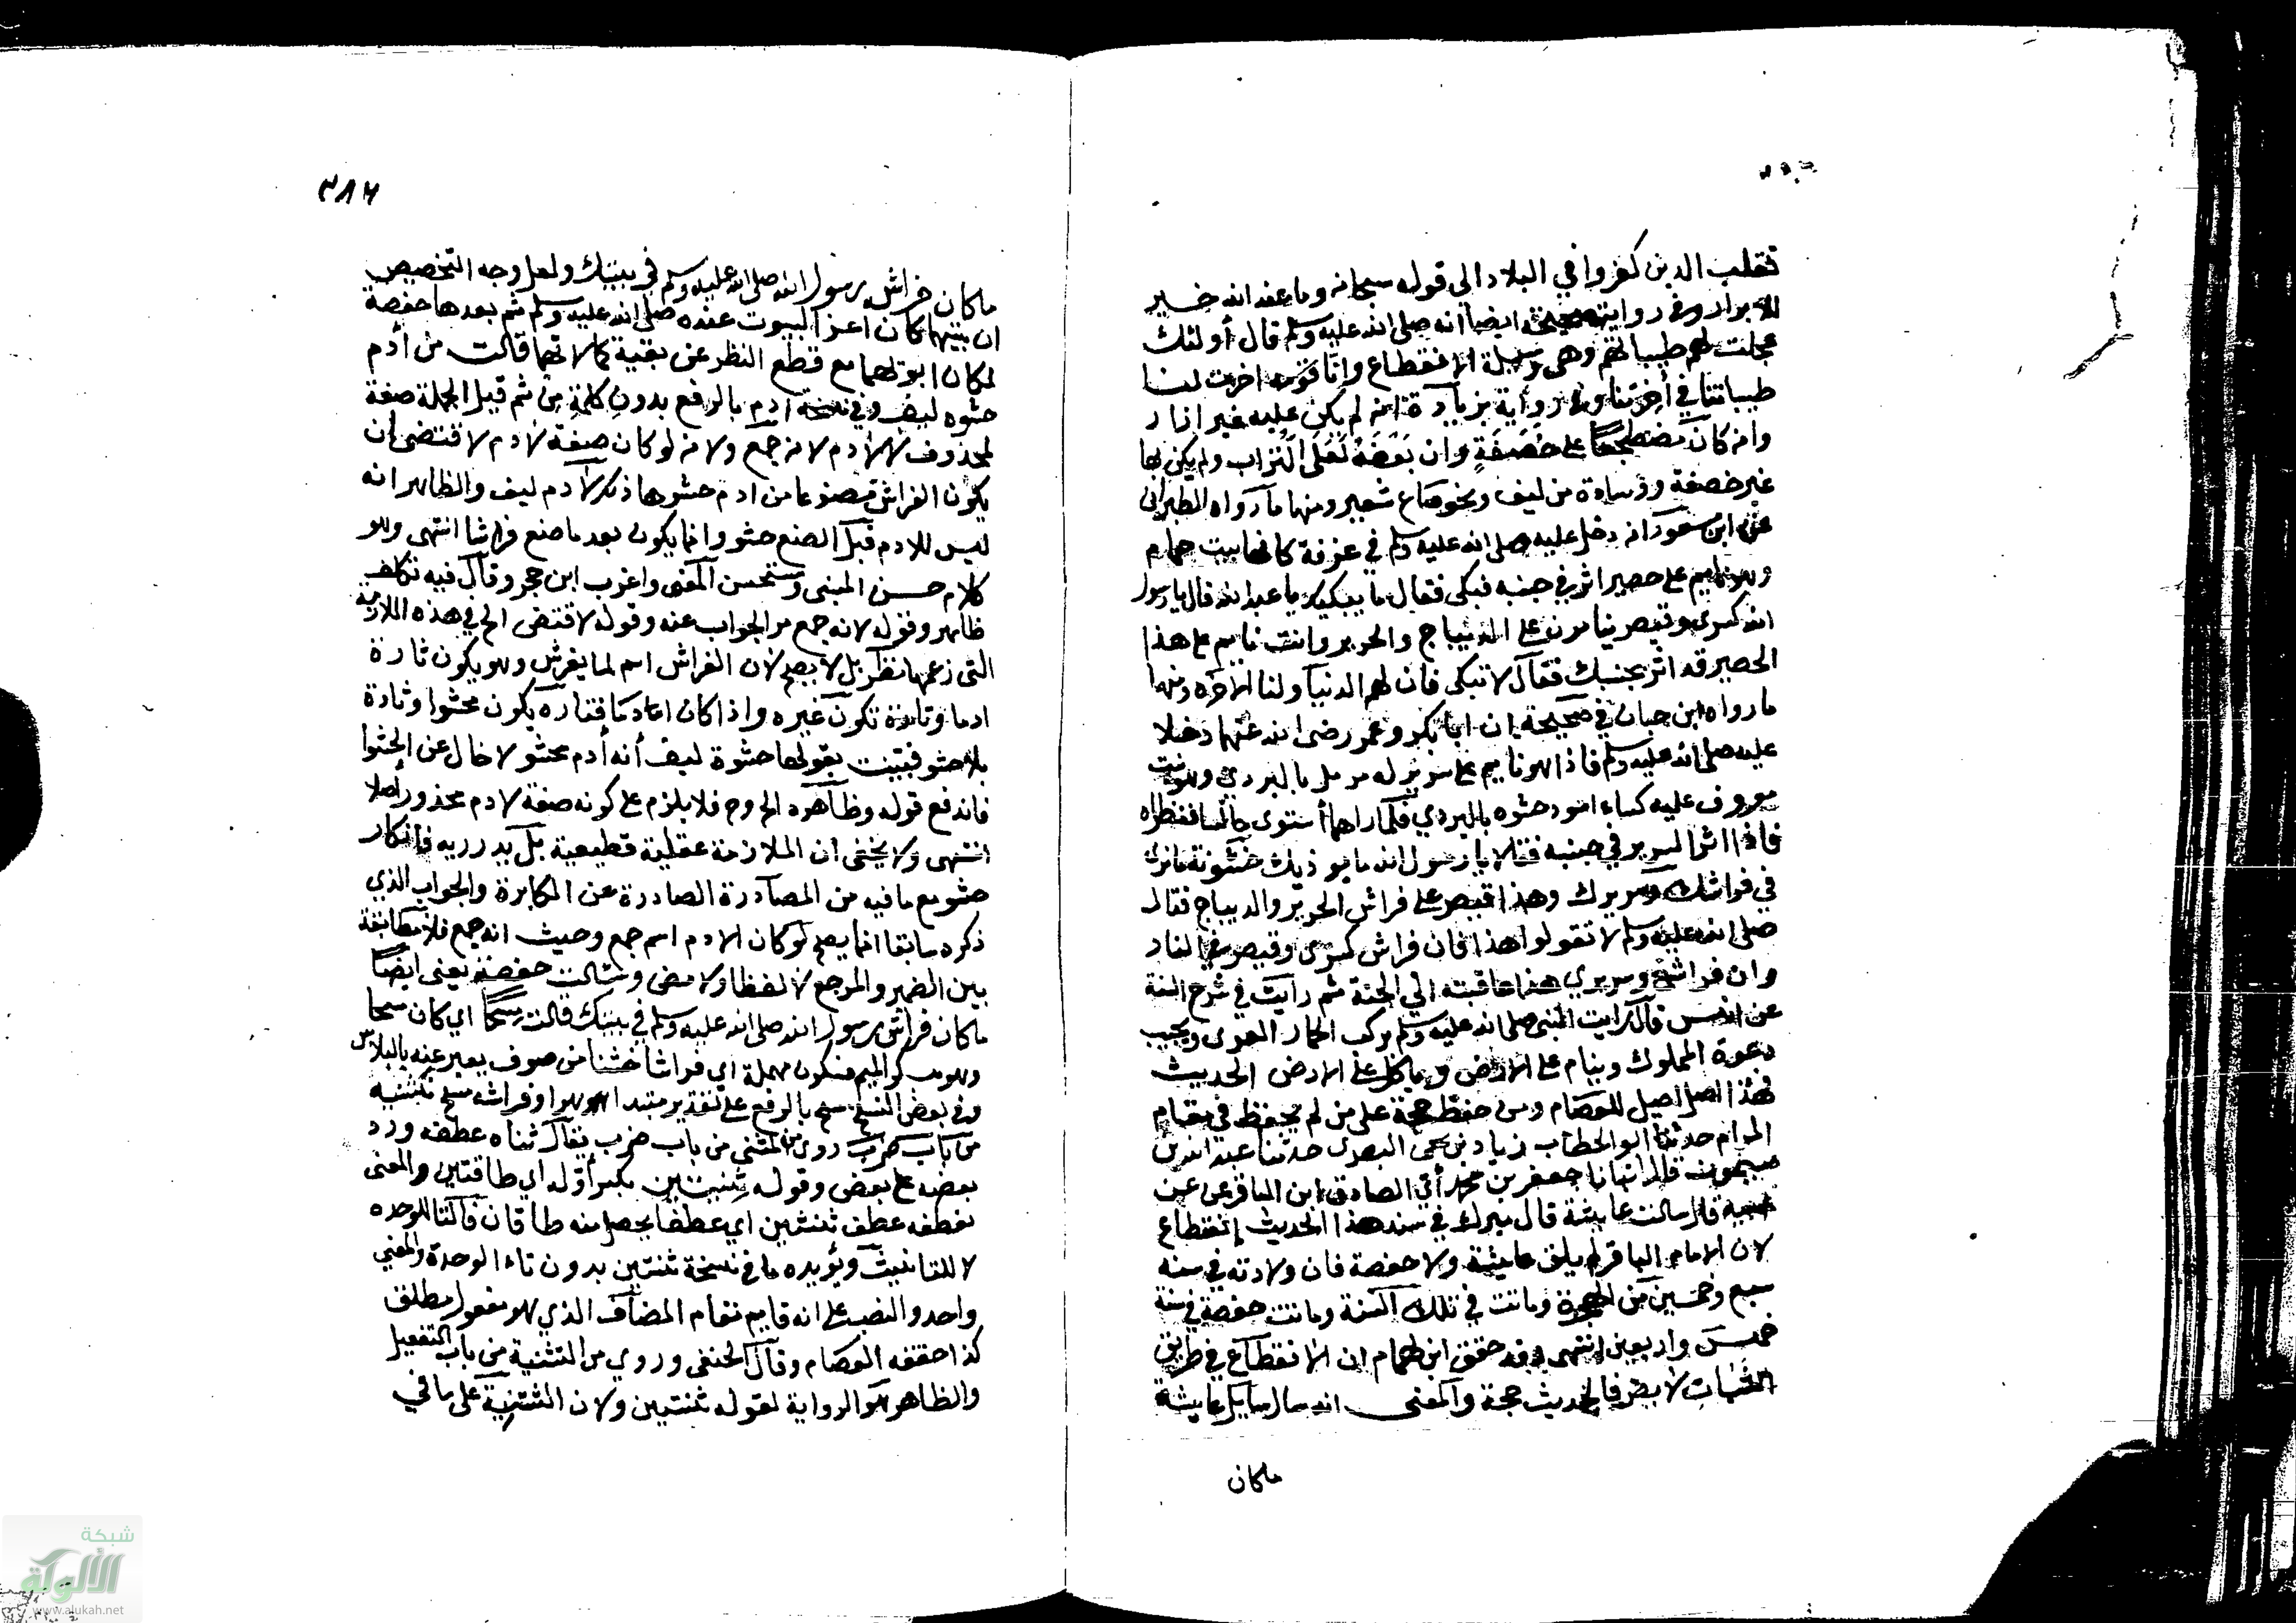 تقلب الذين كفروا في البلاد الى قوله سبحانه وما عند الله خير
للابرار وفي رواية صحيحة ايضا انه صلى الله عليه وسلم قال أولئك
عجلت لهم طيباتهم وهي وسيلة الانقطاع وانا قوم اخرت لنا
طيباتنا في أخرتنا وفي رواية بزيادة انه لم يكن عليه غير ازار
وانه كان مضطجعا على خصفة وان بعضه لعلى التراب ولم يكن بها
غير خصفة ووسادة من ليف ونحو صاع شعير ومنها ما رواه الطبراني
عن ابن مسعود انه دخل عليه صلى الله عليه وسلم في غرفة كانها بيت حمام
وهو نايم على حصير اثر في جنبه فبكى فقال ما يبكيك يا عبد الله قال يا رسول
الله كسرى وقيصر ينامون على الديباج والحرير وانت نايم على هذا
الحصير قد اثر بجنبك فقال لا تبكي فان لهم الدنيا ولنا الاخرة ومنها
ما رواه ابن حبان في صحيحه ان ابا بكر وعمر رضي الله عنهما دخلا
عليه صلى الله عليه وسلم فاذا هو نايم على سرير له مرمل بالبردي وهو نبت
معروف عليه كساء اسود حشوه بالبردي فلما راهما استوى جالسا فنظراه
فاذا اثر السرير في جنبه فقالا يا رسول الله ما يوذيك خشونة ما نرى
في فراشك وسريرك وهذا قيصر على فراش الحرير والديباج فقال
صلى الله عليه وسلم لا تقولوا هذا فان فراش كسرى وقيصر في النار
وان فراشي وسريري هذا عاقبته الي الجنة ثم رايت في شرح السنة
عن انس قال رايت النبي صلى الله عليه وسلم يركب الحمار العري ويجيب
دعوة المملوك وينام على الارض وياكل على الارض الحديث
فهذا اصل اصيل للعصام ومن حفظ حجة على من لم يحفظ في مقام
المرام حدثنا ابو الخطاب زياد بن يحيى البصري حدثنا عبد الله بن
ميمون قال انبانا جعفر بن محمد أي الصادق ابن الباقر عن
ابيه قال سالت عايشة قال ميرك في سند هذا الحديث إنقطاع
لان الامام الباقر لم يلق عايشة ولا حفصة فان ولادته في سنه
سبع وخمسين من الهجرة وماتت في تلك السنة وماتت حفصة في سنة
خمس واربعين انتهى وقد حقق ابن الهمام ان الانقطاع في طريق
الثبات لا يضر فالحديث حجة والمعنى انه سال سايل عايشة
ماكان
٣٨٦
ما كان فراش رسول الله صلى الله عليه وسلم في بيتك ولعل وجه التخصيص
ان بيتها كان اعز البيوت عنده صلى الله عليه وسلم ثم بعدها حفصة
لمكان ابويهما مع قطع النظر عن بقية كمالاتهما قالت من أدم
حشوه ليف وفي نسخة ادم بالرفع بدون كلمة من ثم قيل الجملة صفة
لمحذوف لا لادم لانه جمع ولانه لو كان صفة لادم لاقتضى ان
يكون الفراش مصنوعا من ادم حشوها ذلك الادم ليف والظاهر انه
ليس للادم قبل الصنع حشو وانما يكون بعد ما صنع فراشا انتهى وهو
كلام حسن المبنى ومستحسن المعنى واغرب ابن حجر وقال فيه تكلف
ظاهر وقوله لانه جمع مر الجواب عنه وقوله لاقتضى الخ في هذه الملازمة
التي زعمها نظر بل لا يصح لان الفراش اسم لما يفرش وهو يكون تارة
ادما وتارة تكون غيره واذا كان ادما فتارة يكون محشوا وتارة
بلا حشو فبينت بقولها حشوة ليف أنه أدم محشو لا خال عن الحشو
فاندفع قوله وظاهره الخ وح فلا يلزم على كونه صفة لادم محذور أصلا
انتهى ولا يخفى ان الملازمة عقلية قطعية بل بديهية فانكار
حشو مع ما فيه من المصادرة الصادرة عن المكابرة والجواب الذي
ذكره سابقا انما يصح لو كان الادم اسم جمع وحيث انه جمع فلا مطابقة
بين الضمير والمرجع لا لفظا ولا معنى وسئلت حفصة يعني ايضا
ما كان فراش رسول الله صلى الله عليه وسلم في بيتك قالت مسحا اي كان مسحا
وهو بكسر الميم فسكون مهملة اي فراشا خشنا من صوف يعبر عنه بالبلاس
وفي بعض النسخ مسح بالرفع على تقدير مبتدا هو هو او فراشه مسح نثنيه
من باب ضرب روى من المثنى من باب ضرب يقال ثناه عطفه ورد
بعضه على بعض وقوله ثنيتين بكسر أوله اي طاقتين والمعنى
نعطفه عطف ثنيتين اي عطفا يحصل منه طاقان فالتا للوحده
لا للتانيث ويؤيده ما في نسخة ثنيين بدون تاء الوحدة والمعني
واحد والنصب على انه قايم مقام المضاف الذي هو مفعول مطلق
كذا حققه العصام وقال الحنفي وروي من التثنية من باب التفعيل
والظاهر هو الرواية لقوله ثنيتين ولان التثنية على ما في
شبكة
الألوكة
www.alukah.net